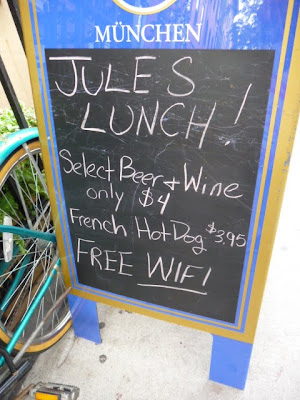 MÜNCHEN
JULES
LUNCH!
Select Beer + Wine
only $4
French Hot Dog $3.95
FREE WIFI
MÜNCHEN